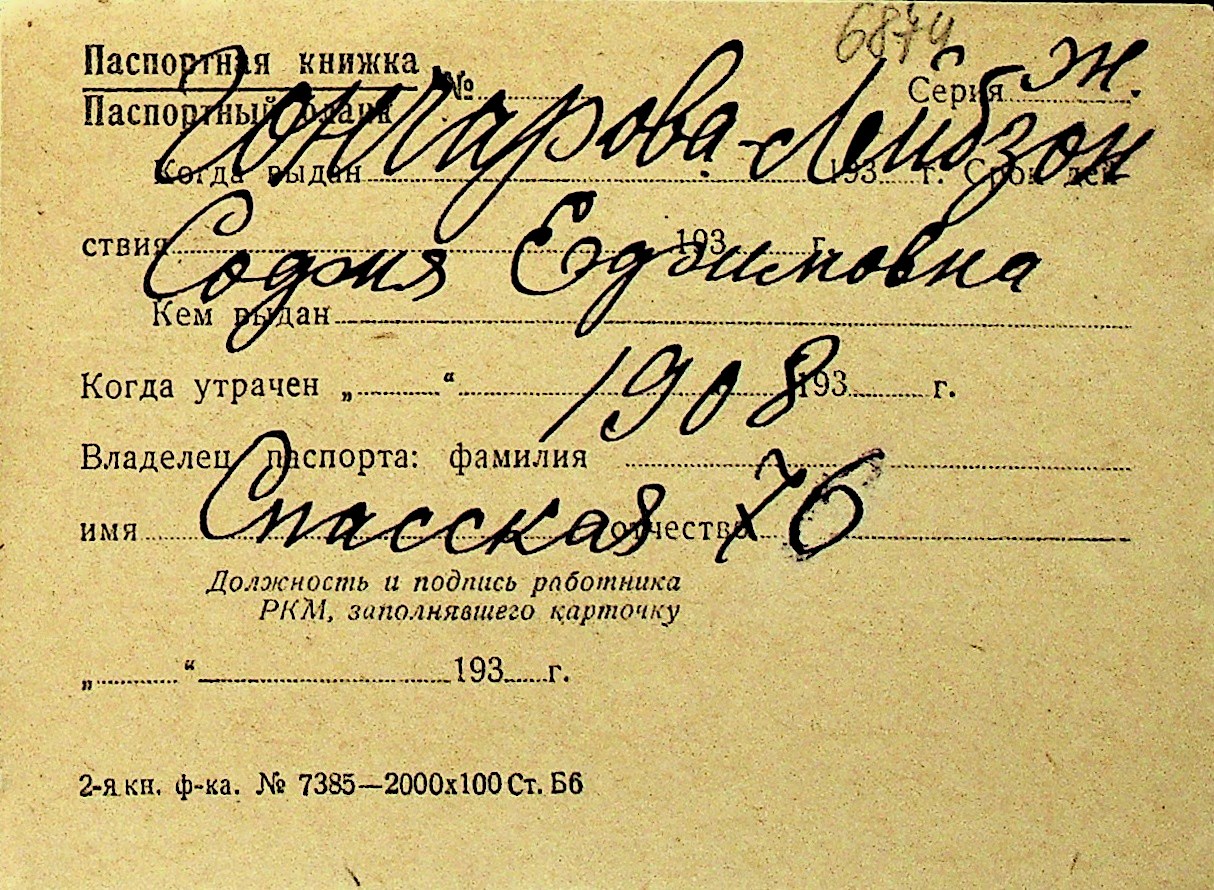 6874
Паспортная книжка
Паспортный бланк
№ Серия ж.
Гончарова-Лейбзон
Когда выдан 193 г. Срок дей-
ствия 193 г.
София Ефимовна
Кем выдан
Когда утрачен „ “ 193 г.
1908
Владелец паспорта: фамилия
Спасская 76
имя отчество
Должность и подпись работника
РКМ, заполнявшего карточку
„ “ 193 г.
2-я кн. ф-ка. № 7385—2000х100 Ст. Б6